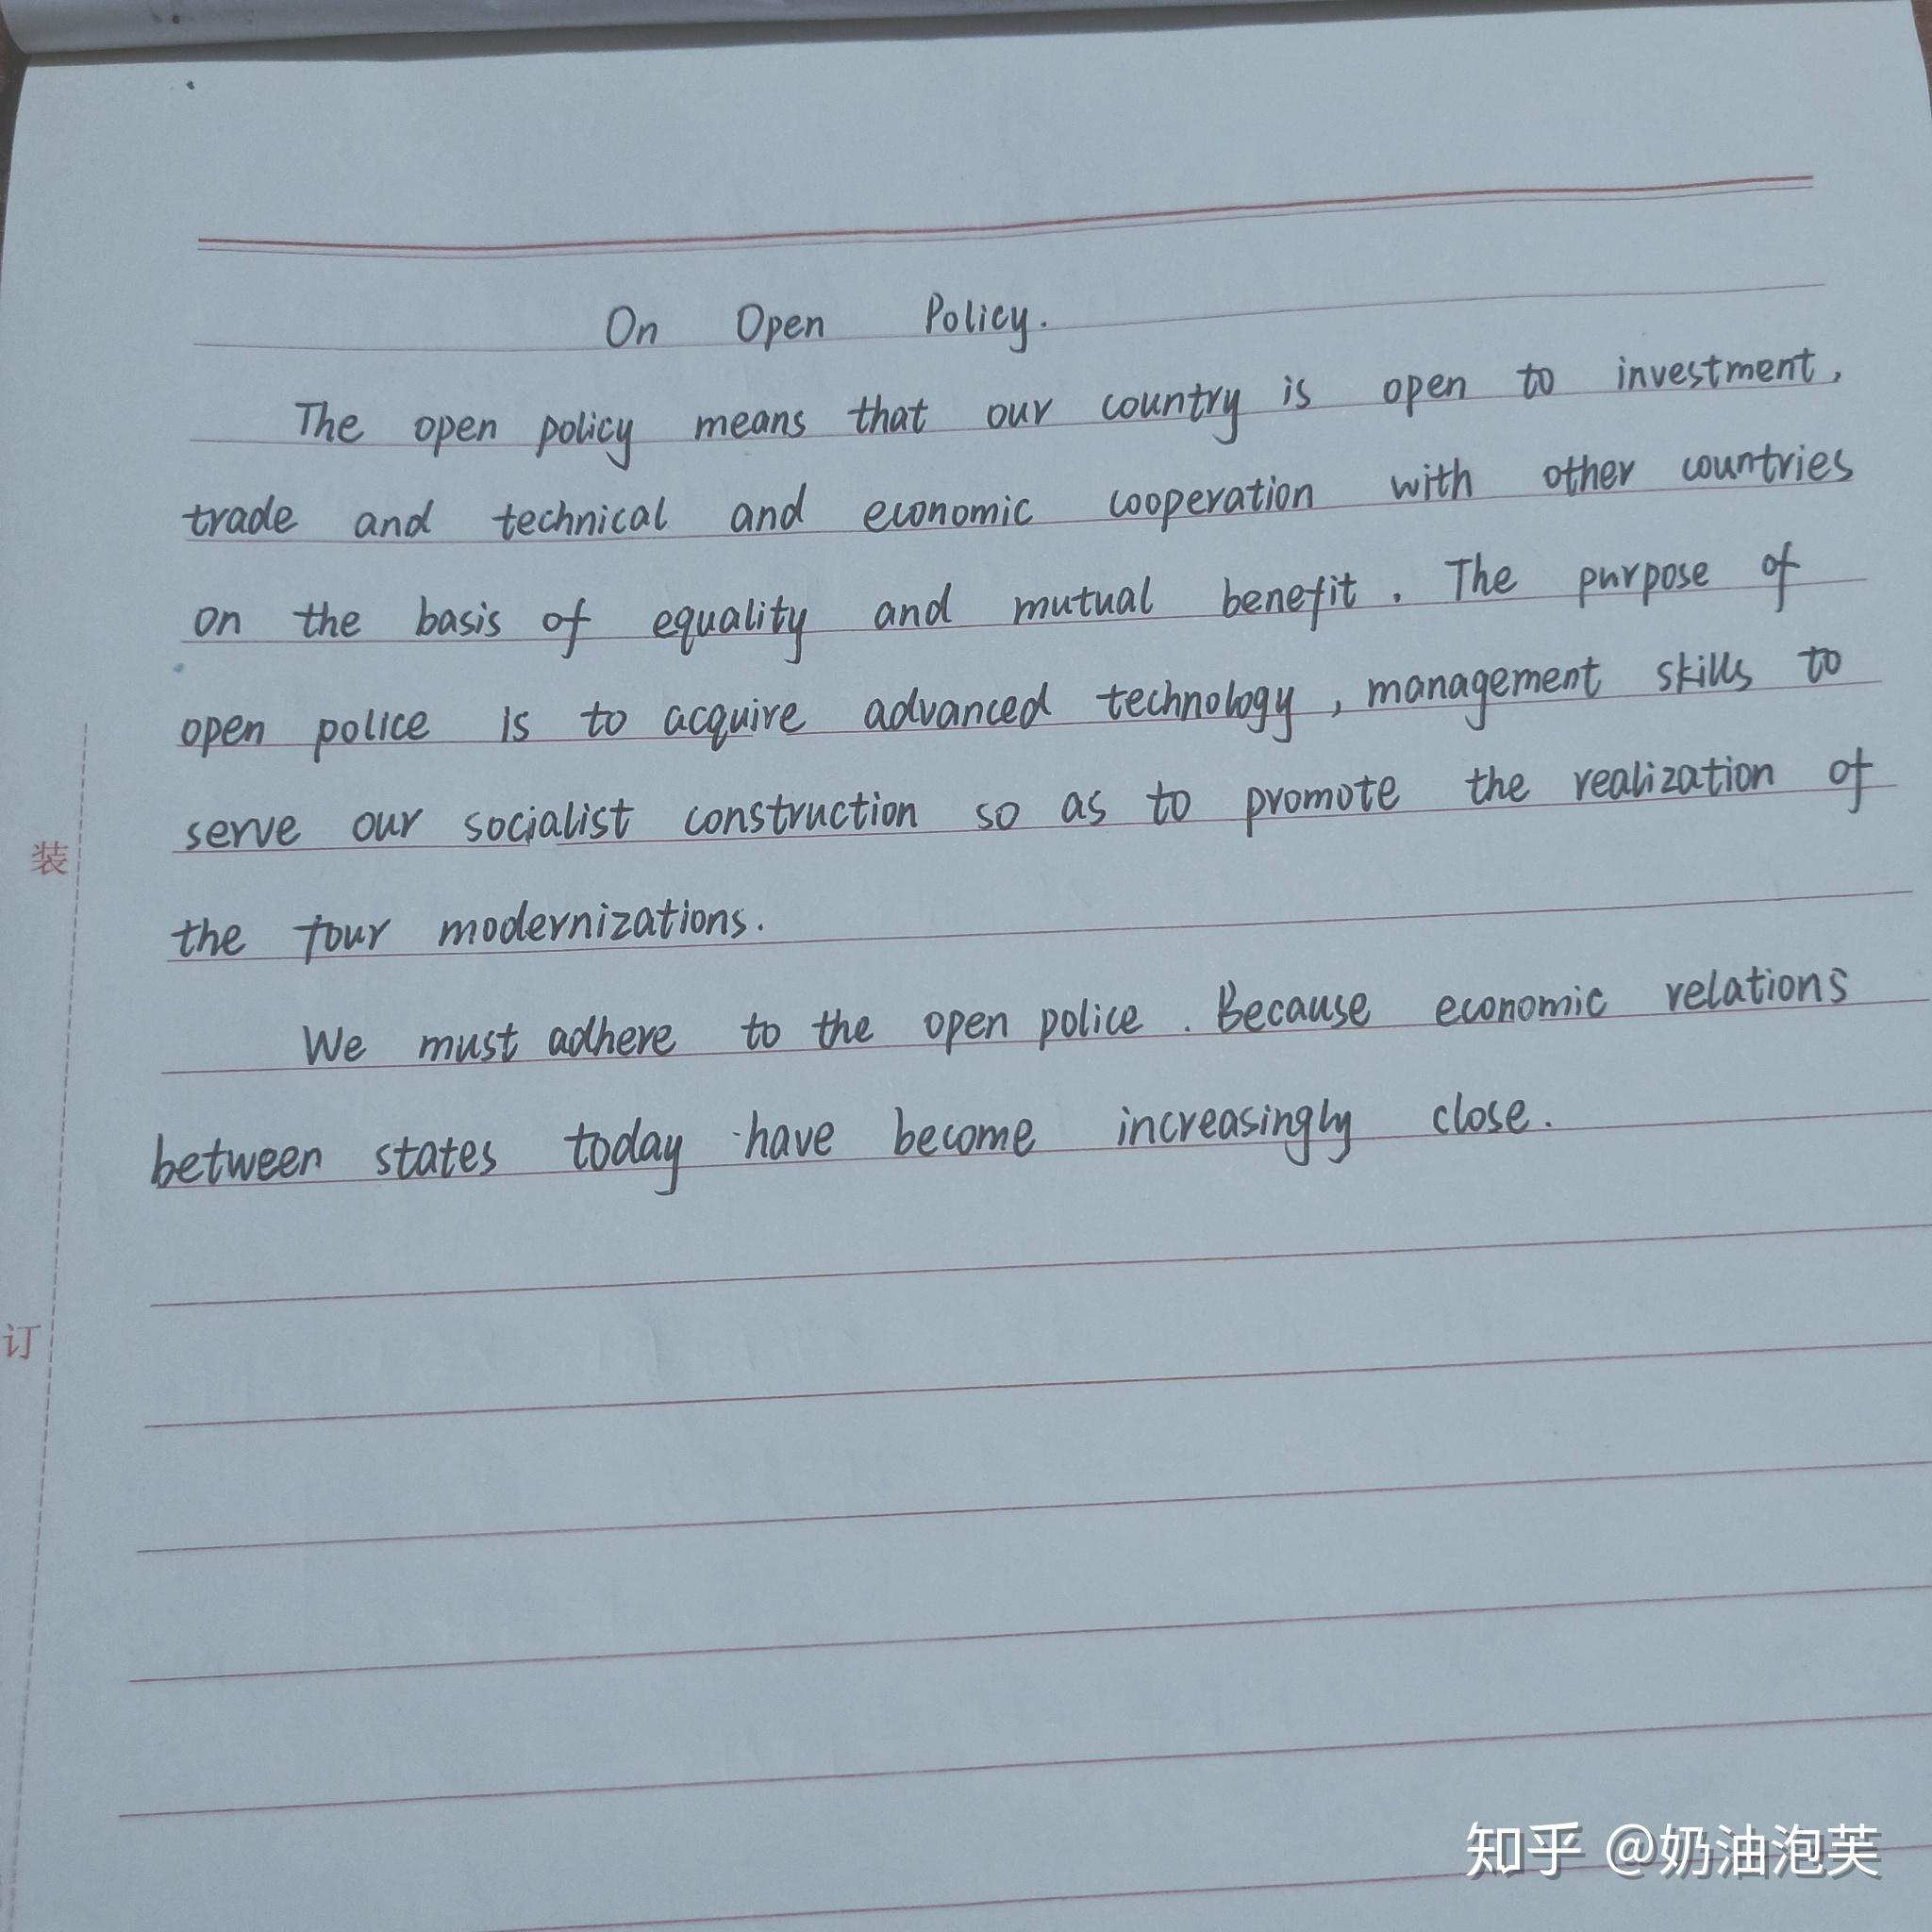 On Open Policy.
The open policy means that our country is open to investment,
trade and technical and economic cooperation with other countries
on the basis of equality and mutual benefit. The purpose of
open police is to acquire advanced technology, management skills to
serve our socialist construction so as to promote the realization of
the four modernizations.
We must adhere to the open police. Because economic relations
between states today have become increasingly close.
装
订
知乎 @奶油泡芙